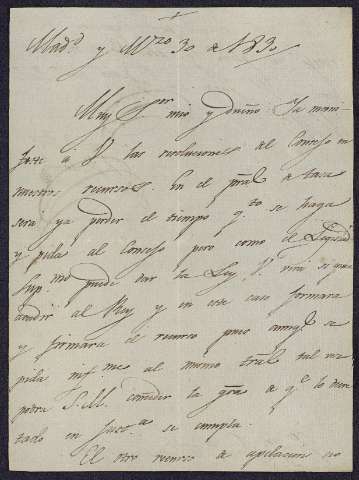 Mad.d y M.zo 30 de 1830
Muy S.or mio y dueño. Ya mani-
festé à V las resoluciones del Consejo en
nuestros recursos. En el pral de tasa
será ya perder el tiempo q.to se haga
y pida al Consejo pero como el Legislad
Sup.mo puede dar la Ley V. vea si quie
acudir al Rey y en este caso formara
y formara el recurso pues aunq.e se
pida ynf.mes al mismo tral tal vez
podra S.M. conceder la gra de q.e lo
tado en se cumpla.
El otro recurso de apelacion no